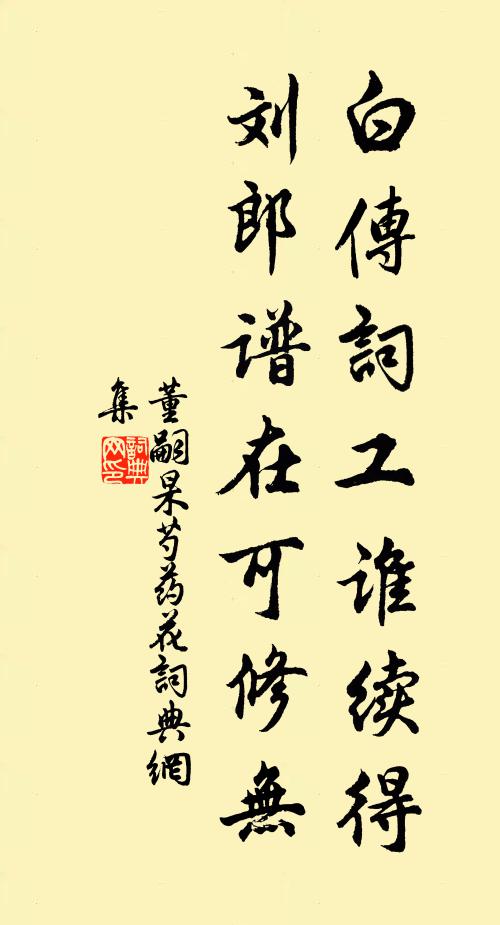 白傅詞工谁续得
刘郎谱在可修無
董嗣杲芍药花詞典網
集
詞典网印